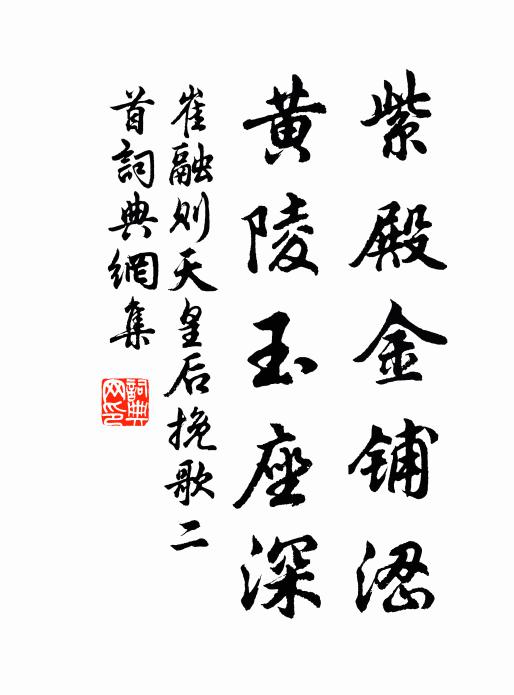 紫殿金铺涩
黄陵玉座深
崔融则天皇后挽歌二
首詞典網集
詞典
网印